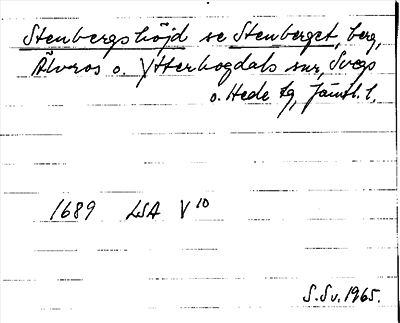 Stenbergshöjd se Stenberget, berg,
Älvros o. Ytterhogdals snr, Svegs
o. Hede tg, Jämtl. l.
1689 LSA V 10
S.Sv. 1965.